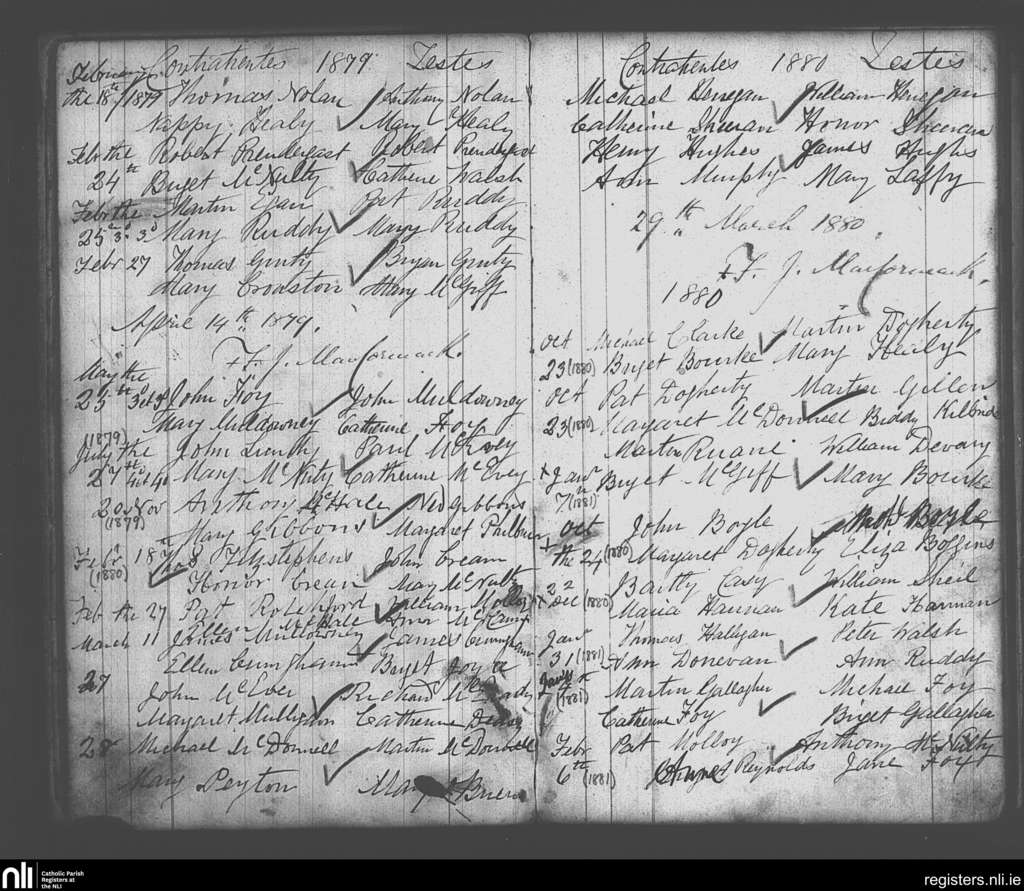 Contrahentes 1879 Testes
February
the 18th/1879 Thomas Nolan Anthony Nolan
Nappy Healy Mary Healy
Feb the Robert Prendergast Robert Prendergast
24th Briget McNulty Catherine Walsh
Febr the Martin Egan Pat Ruddy
25 3° 3° Mary Ruddy Mary Ruddy
Febr 27 Thomas Ginty Bryan Ginty
Mary Croaston Mary McGriff
April 14th 1879.
+ F. J. MacCormack.
May the
25th John Foy John Muldowney
Mary Muldowney Catherine Foy
(1879)
July the John Paul McEvey
27th Mary McNulty Catherine McEvey
20 Nov Anthony McHale Ned Gibbons
(1879)
Mary Gibbons Margaret Philbin
Febr 18th Fitzstephens John Crean
(1880)
Honor Crean Mary McNulty
Feb the 27 Pat Rochford William Molloy
Ellen McHale Honor
March 11 James Mullowney James Cuningham
Ellen Cuningham Briget Joyce
27
John McEver Richard
Margaret Mulligan Catherine
28 Michael McDonnell Martin McDonnell
Mary Peyton Mary
Contrahentes 1880 Testes
Michael Henegan William Henegan
Catherine Sheeran Honor Sheeran
Henry Hughes James Hughs
Ann Murphy Mary Laffy
29th March 1880.
+ F. J. MacCormack.
1880
Oct Michael Clarke Martin Dogherty
23 (1880) Briget Bourke Mary Healy
Oct Pat Dogherty Martin Gillen
23 (1880) Margaret McDonnell Biddy
Martin Ruane William Devany
+ Janr Briget McGiff Mary Bourke
7th (1881)
+ Oct John Boyle Boyle
the 24 (1880) Margaret Dogherty Eliza Boggins
22 Bartly Casy William Sheil
+ Dec (1880) Maria Hannan Kate Harman
Janr Thomas Halligan Peter Walsh
31 (1881) Ann Donevan Ann Ruddy
Martin Gallagher Michael Foy
(1881) Catherine Foy Briget Gallagher
Febr Pat Molloy Anthony McNulty
6th (1881) Reynolds Jane Foy
nli Catholic Parish
Registers at
the NLI
registers.nli.ie